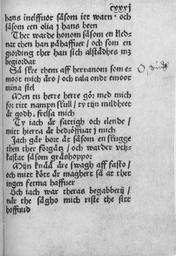 cxxxj
hans ineluffuor såsom itt warn · och
såsom een olia j hans been
Ther warde honom såsom en kledz
nat then han påhaffuer / och som en
giording ther han sich alstådhes mz
begiordar
Så skee them aff herranom som e-
moot mich äro / och tala ondt emoot
mina siel
Men tu herre herre gör med mich
for titt nampn skull / ty tijn mildheet
är godh, frelsa mich
Ty iach är fattigh och elende /
mitt hierta är bedröffuat j mich
Jach går bort är såsom en skugge
then ther förgåtz / och warder vth-
kastat såsom gräshoppor
Mijn knää äre swagh aff fasto /
och mitt kött är maghert så at ther
ingen fetma haffuer
Och iach war theras begabberij /
når the såghe mich riste the sitt
hoffuud